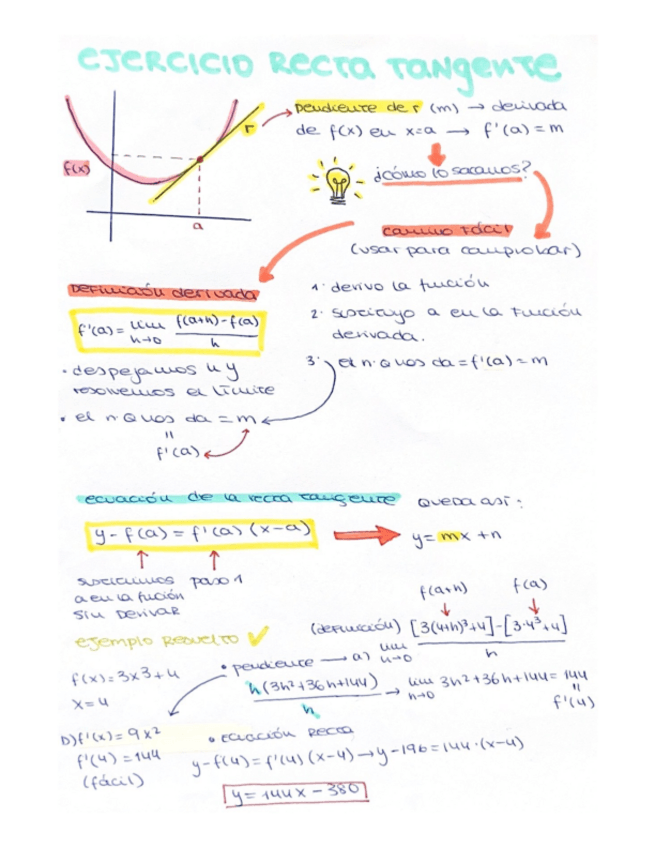 EJERCICIO RECTA TANGENTE
pendiente de r (m) → derivada
de f(x) en x=a → f'(a) = m
r
f(x)
a
¿cómo lo sacamos?
camino fácil
(usar para comprobar)
Definición derivada
f'(a) = lim h→0 f(a+h) - f(a) / h
· despejamos h y
resolvemos el límite
· el nº q nos da = m
=
f'(a)
1· derivo la función
2· sustituyo a en la función
derivada.
3· el nº q nos da = f'(a) = m
ecuación de la recta tangente queda así:
y - f(a) = f'(a) (x-a) → y = mx + n
sustituimos
a en la función
sin derivar
paso 1
ejemplo resuelto ✓
f(x) = 3x³ + 4
x = 4
f(a+h) f(a)
(definición) [3(4+h)³+4] - [3·4³+4]
• pendiente → a) lim h→0 h
h(3h²+36h+144) / h → lim h→0 3h²+36h+144 = 144
=
f'(4)
b) f'(x) = 9x²
f'(4) = 144
(fácil)
• ecuación recta
y - f(4) = f'(4) (x-4) → y - 196 = 144·(x-4)
y = 144x - 380